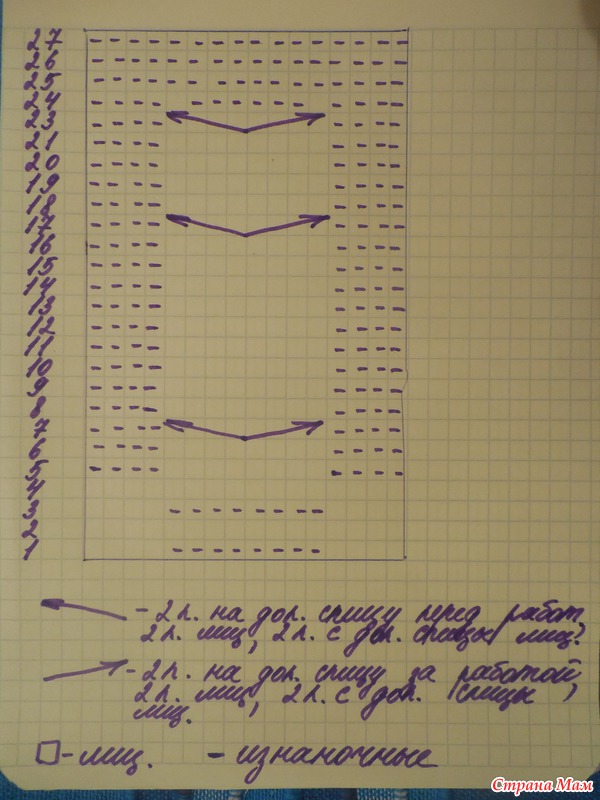 27
26
25
24
23
22
21
20
19
18
17
16
15
14
13
12
11
10
9
8
7
6
5
4
3
2
1
- 2 п. на доп. спицу перед работ,
2 п. лиц, 2 п. с доп. спицы лиц.
- 2 п. на доп. спицу за работой,
2 п. лиц, 2 п. с доп. спицы,
лиц.
□ - лиц. - изнаночные
Страна Мам